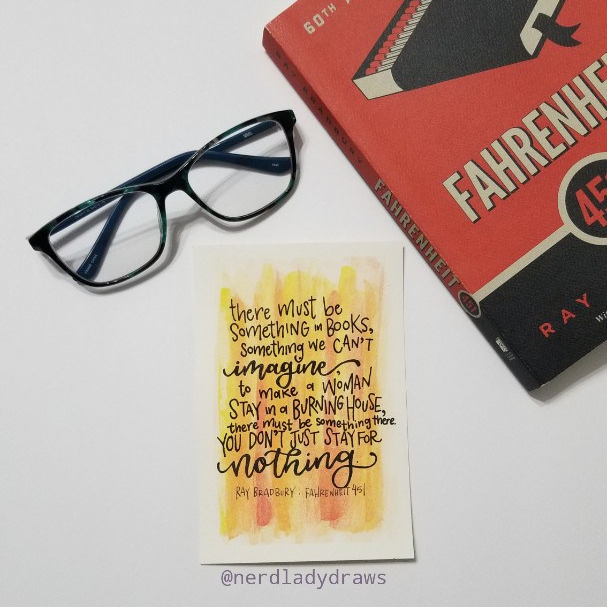 60TH
FAHRENHEI
45
RAY
RAY BRADBURY
FAHRENHEIT 451
there must be
SOMETHING in BOOKS,
Something we CAN'T
imagine,
to make a WOMAN
STAY in a BURNING HOUSE,
there must be something there.
YOU DON'T JUST STAY FOR
nothing.
RAY BRADBURY · FAHRENHEIT 451
@nerdladydraws